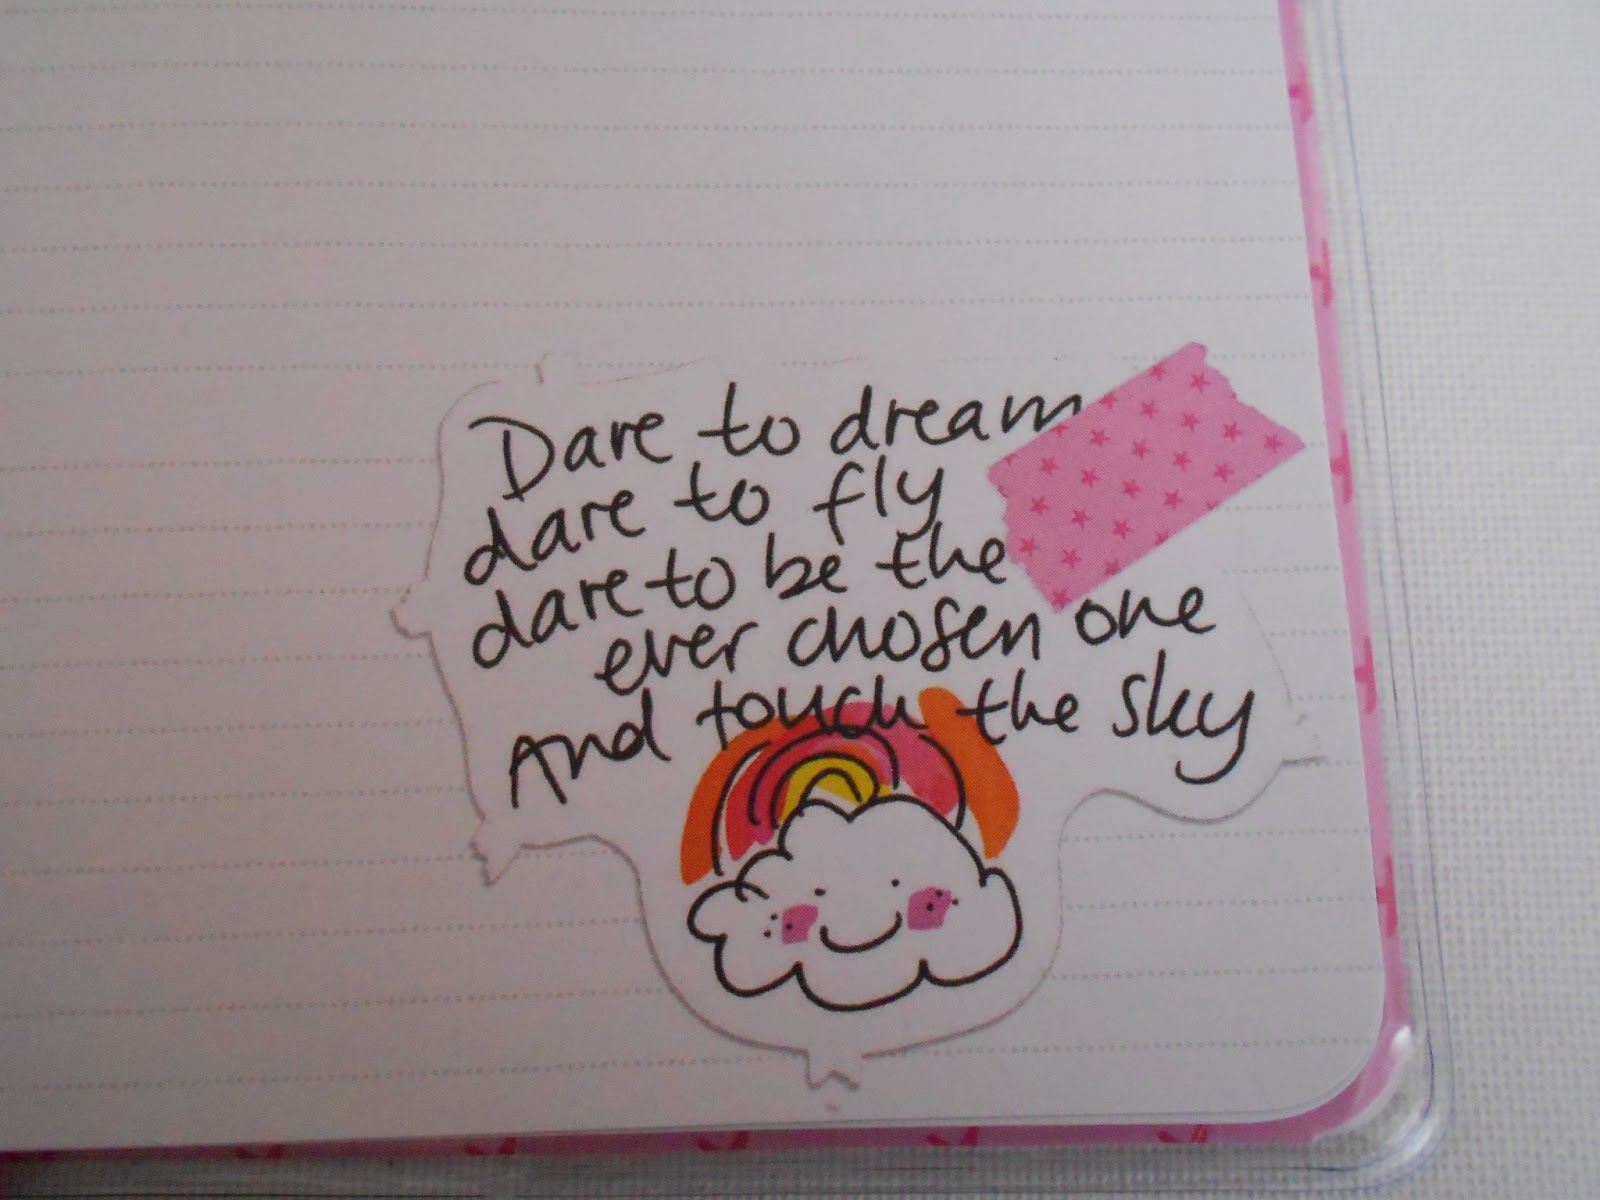 Dare to dream
dare to fly
dare to be the
ever chosen one
And touch the sky